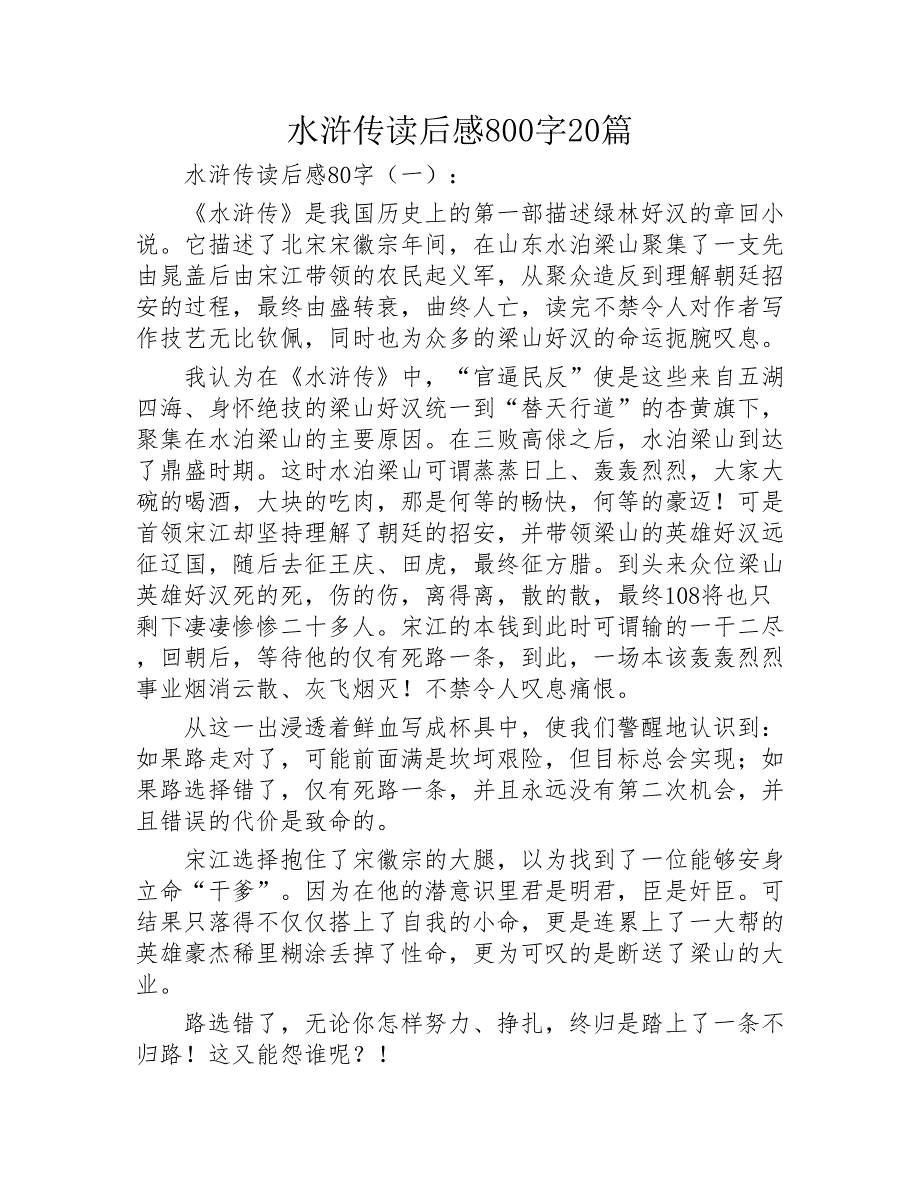 水浒传读后感800字20篇
水浒传读后感80字（一）：
《水浒传》是我国历史上的第一部描述绿林好汉的章回小
说。它描述了北宋宋徽宗年间，在山东水泊梁山聚集了一支先
由晁盖后由宋江带领的农民起义军，从聚众造反到理解朝廷招
安的过程，最终由盛转衰，曲终人亡，读完不禁令人对作者写
作技艺无比钦佩，同时也为众多的梁山好汉的命运扼腕叹息。
我认为在《水浒传》中，“官逼民反”使是这些来自五湖
四海、身怀绝技的梁山好汉统一到“替天行道”的杏黄旗下，
聚集在水泊梁山的主要原因。在三败高俅之后，水泊梁山到达
了鼎盛时期。这时水泊梁山可谓蒸蒸日上、轰轰烈烈，大家大
碗的喝酒，大块的吃肉，那是何等的畅快，何等的豪迈！可是
首领宋江却坚持理解了朝廷的招安，并带领梁山的英雄好汉远
征辽国，随后去征王庆、田虎，最终征方腊。到头来众位梁山
英雄好汉死的死，伤的伤，离得离，散的散，最终108将也只
剩下凄凄惨惨二十多人。宋江的本钱到此时可谓输的一干二尽
，回朝后，等待他的仅有死路一条，到此，一场本该轰轰烈烈
事业烟消云散、灰飞烟灭！不禁令人叹息痛恨。
从这一出浸透着鲜血写成杯具中，使我们警醒地认识到：
如果路走对了，可能前面满是坎坷艰险，但目标总会实现；如
果路选择错了，仅有死路一条，并且永远没有第二次机会，并
且错误的代价是致命的。
宋江选择抱住了宋徽宗的大腿，以为找到了一位能够安身
立命“干爹”。因为在他的潜意识里君是明君，臣是奸臣。可
结果只落得不仅仅搭上了自我的小命，更是连累上了一大帮的
英雄豪杰稀里糊涂丢掉了性命，更为可叹的是断送了梁山的大
业。
路选错了，无论你怎样努力、挣扎，终归是踏上了一条不
归路！这又能怨谁呢？！